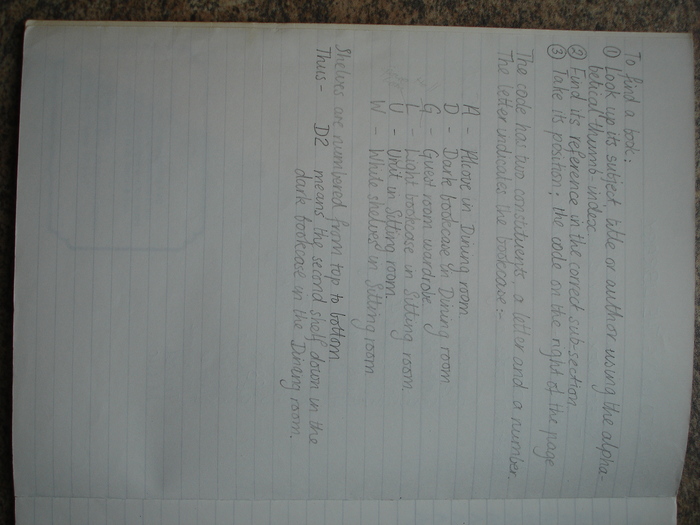 To find a book:
① Look up its subject, title or author using the alpha-
betical thumb-index
② Find its reference in the correct sub-section
③ Take its position; the code on the right of the page
The code has two constituents, a letter and a number.
The letter indicates the bookcase:-
A - Alcove in Dining room
D - Dark bookcase in Dining room
G - Guest room wardrobe
L - Light bookcase in Sitting room
U - Unit in Sitting room
W - White shelves in Sitting room
Shelves are numbered from top to bottom
Thus - D2 means the second shelf down in the
dark bookcase in the Dining room.